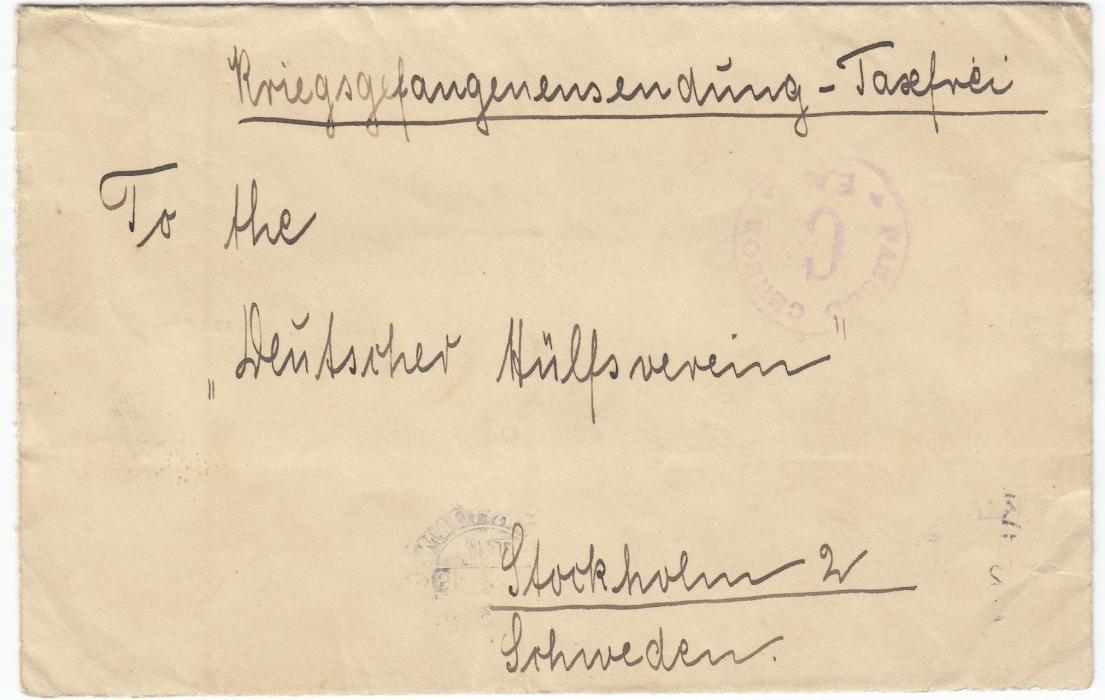 Kriegsgefangenensendung - Taxfrei
To the
„Deutscher Hülfsverein"
Stockholm 2
Schweden.